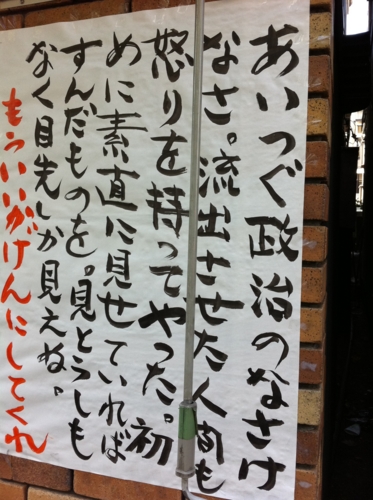 あいつぐ政治のなさけ
なさ。流出させた人間も
怒りを持ってやった。初
めに素直に見せていれば
すんだものを。見とうしも
なく目先しか見えぬ。
もういいがげんにしてくれ